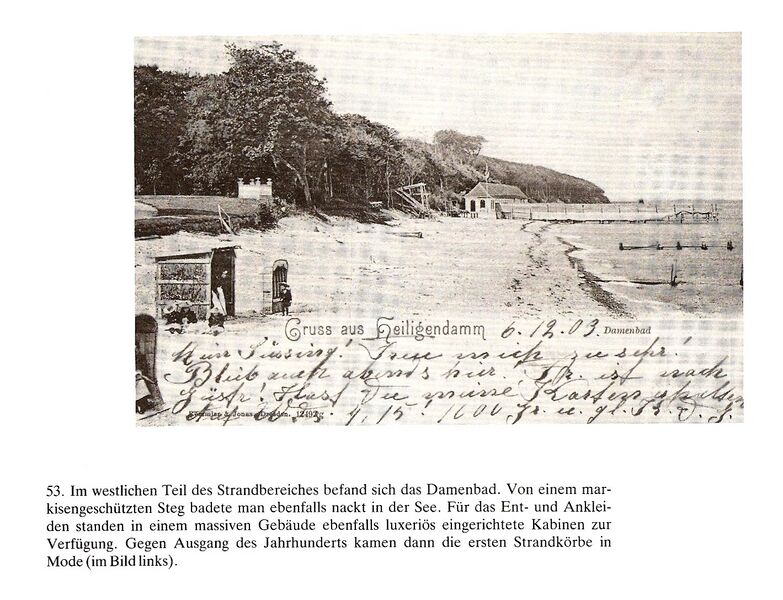 Gruss aus Heiligendamm 6.12.03. Damenbad
Mein Süssing! Freu mich zu sehr!
Bleib auch abends hier, Fr. ist nach
Güstr! Hast Du meine Karten erhalten
Stengel & Jonas, Dresden. 12492
4,15. 1000 Gr. u. gl. K. D. J.
53. Im westlichen Teil des Strandbereiches befand sich das Damenbad. Von einem mar-
kisengeschützten Steg badete man ebenfalls nackt in der See. Für das Ent- und Anklei-
den standen in einem massiven Gebäude ebenfalls luxeriös eingerichtete Kabinen zur
Verfügung. Gegen Ausgang des Jahrhunderts kamen dann die ersten Strandkörbe in
Mode (im Bild links).